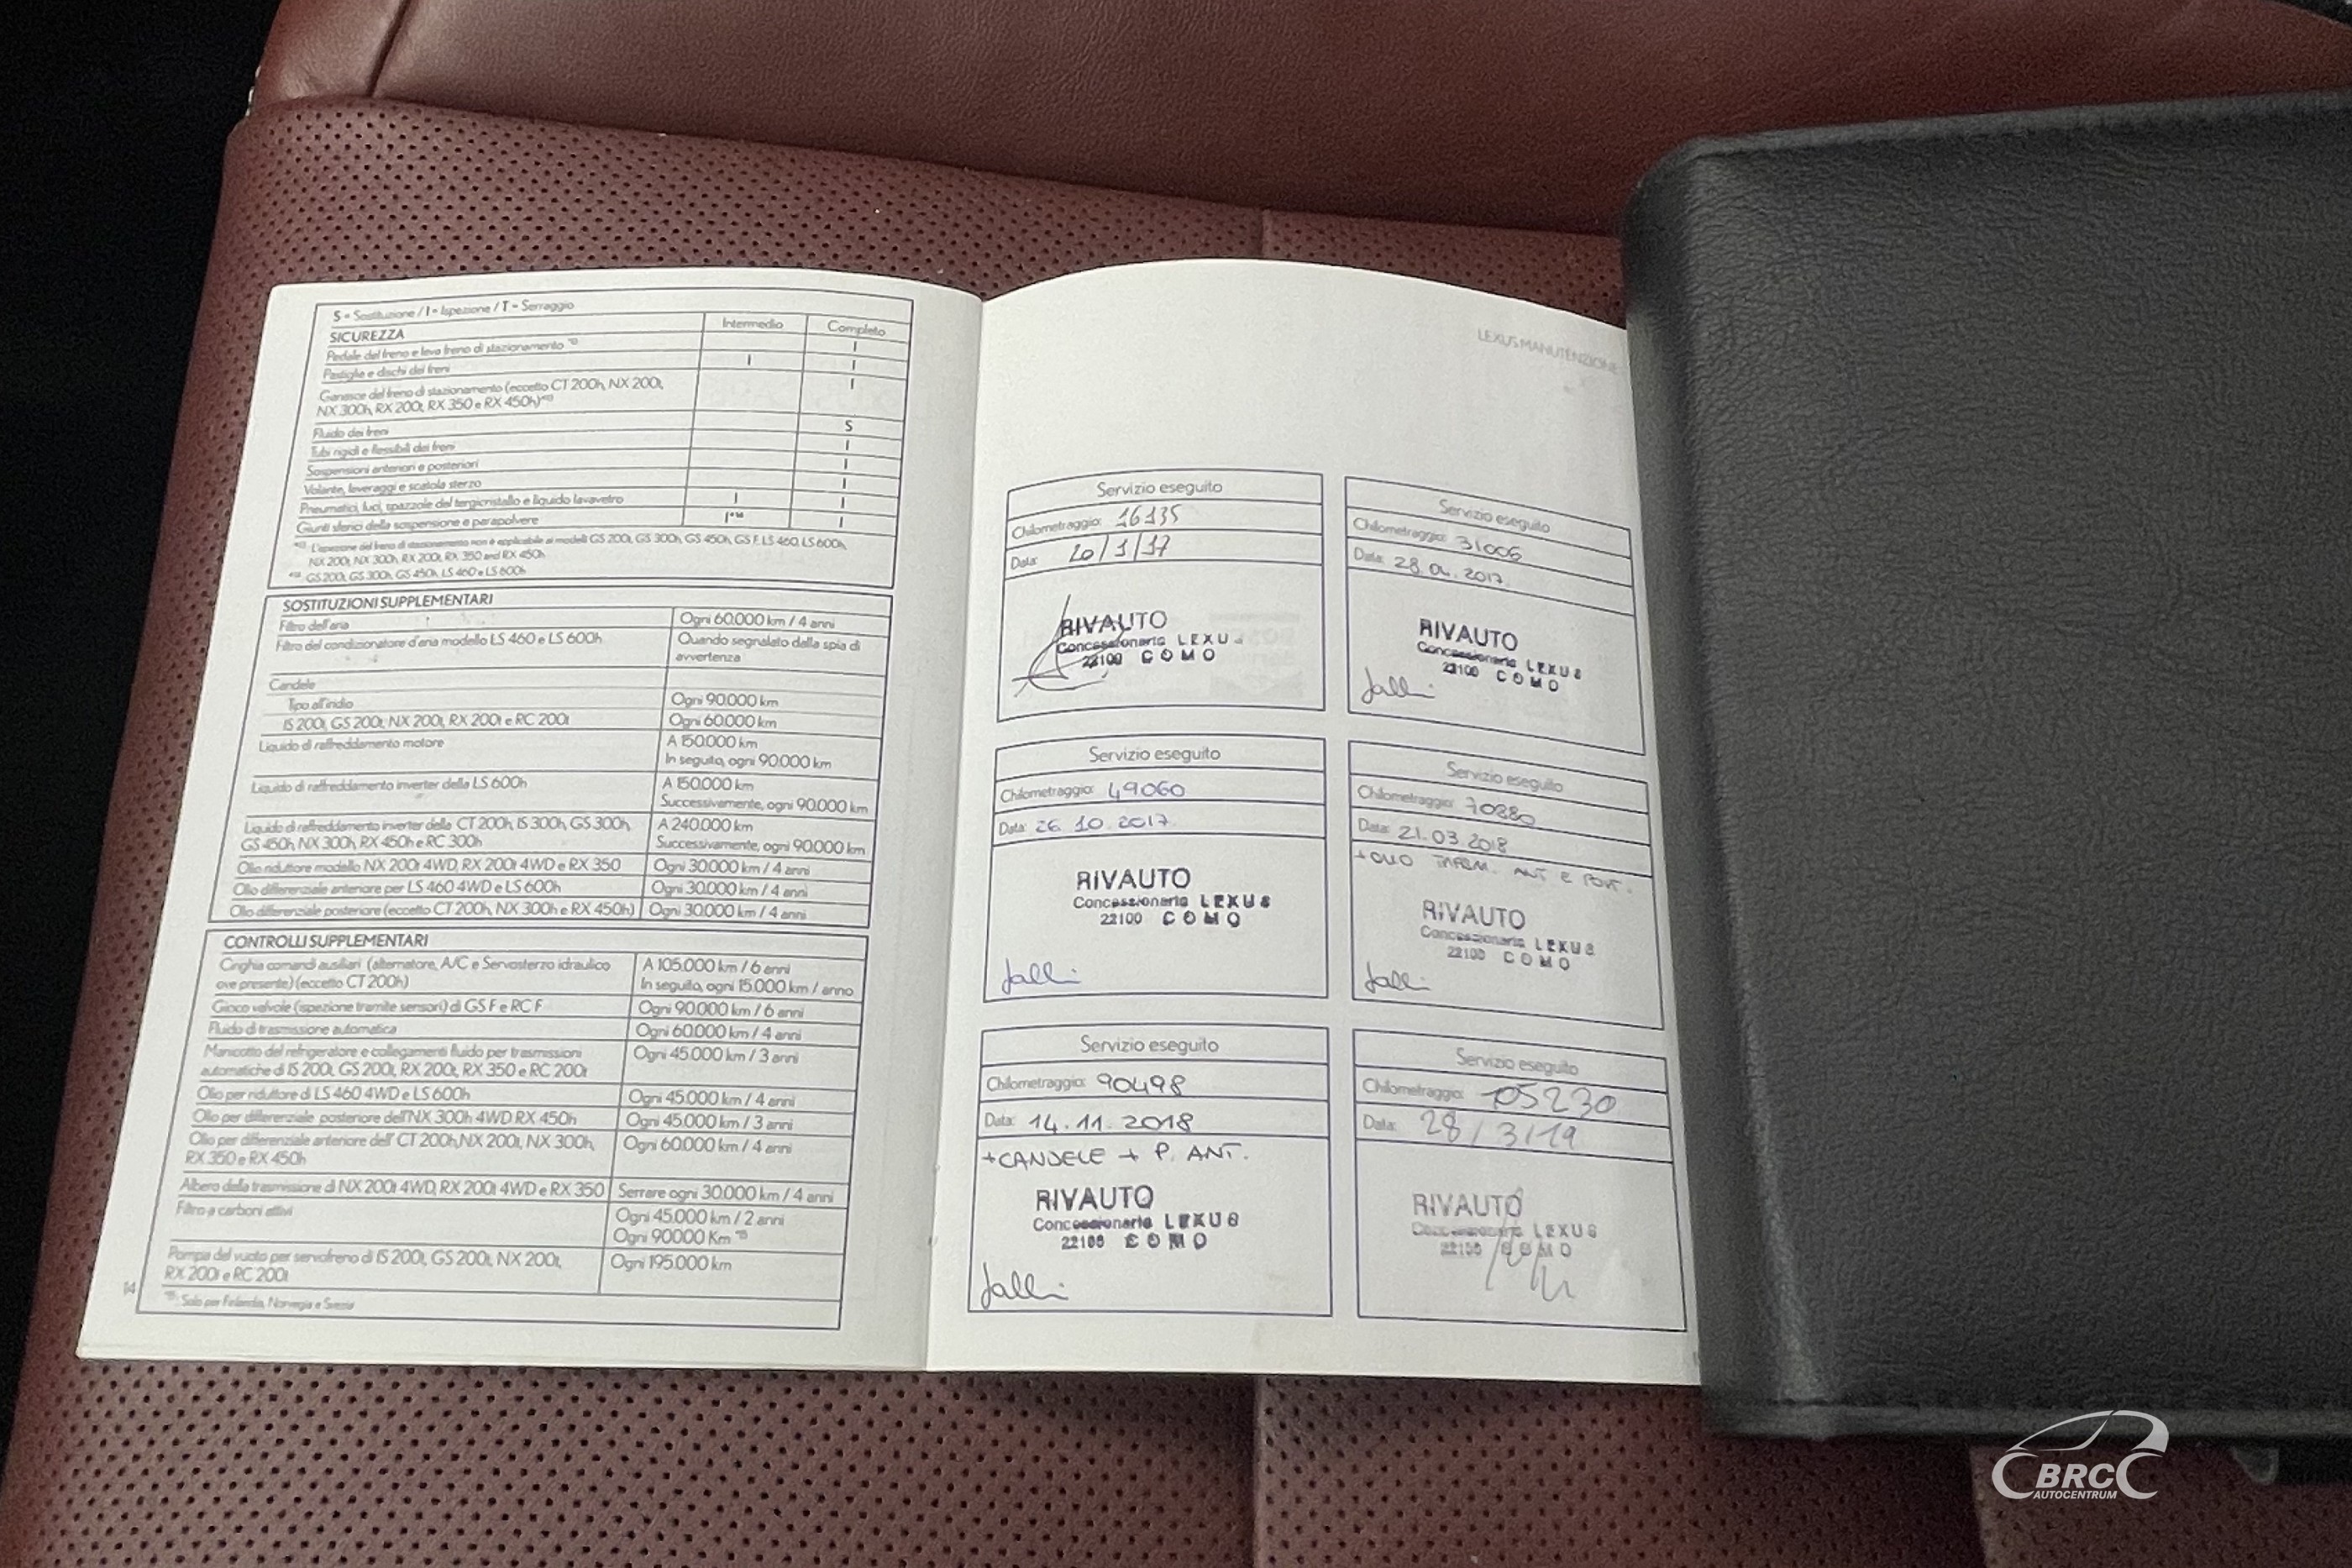 S = Sostituzione / I = Ispezione / T = Serraggio
SICUREZZA Intermedio Completo
Pedale del freno e leva freno di stazionamento I
Pastiglie e dischi dei freni I I
Ganasce del freno di stazionamento (eccetto CT 200h, NX 200t, I
NX 300h, RX 200t, RX 350 e RX 450h)
Fluido dei freni S
Tubi rigidi e flessibili dei freni I
Sospensioni anteriori e posteriori I
Volante, leveraggi e scatola sterzo I
Pneumatici, luci, spazzole del tergicristallo e liquido lavavetro I I
Giunti sferici della sospensione e parapolvere I I
L'ispezione del freno di stazionamento non è applicabile ai modelli GS 200t, GS 300h, GS 450h, GS F, LS 460, LS 600h,
NX 200t, NX 300h, RX 200t, RX 350 and RX 450h
GS 200t, GS 300h, GS 450h, LS 460 e LS 600h
SOSTITUZIONI SUPPLEMENTARI
Filtro dell'aria Ogni 60.000 km / 4 anni
Filtro del condizionatore d'aria modello LS 460 e LS 600h Quando segnalato dalla spia di
avvertenza
Candele
Tipo all'iridio Ogni 90.000 km
IS 200t, GS 200t, NX 200t, RX 200t e RC 200t Ogni 60.000 km
Liquido di raffreddamento motore A 150.000 km
In seguito, ogni 90.000 km
Liquido di raffreddamento inverter della LS 600h A 150.000 km
Successivamente, ogni 90.000 km
Liquido di raffreddamento inverter della CT 200h, IS 300h, GS 300h, A 240.000 km
GS 450h, NX 300h, RX 450h e RC 300h Successivamente, ogni 90.000 km
Olio riduttore modello NX 200t 4WD, RX 200t 4WD e RX 350 Ogni 30.000 km / 4 anni
Olio differenziale anteriore per LS 460 4WD e LS 600h Ogni 30.000 km / 4 anni
Olio differenziale posteriore (eccetto CT 200h, NX 300h e RX 450h) Ogni 30.000 km / 4 anni
CONTROLLI SUPPLEMENTARI
Cinghia comandi ausiliari (alternatore, A/C e Servosterzo idraulico A 105.000 km / 6 anni
ove presente) (eccetto CT 200h) In seguito, ogni 15.000 km / anno
Gioco valvole (ispezione tramite sensori) di GS F e RC F Ogni 90.000 km / 6 anni
Fluido di trasmissione automatica Ogni 60.000 km / 4 anni
Manicotto del refrigeratore e collegamenti fluido per trasmissioni Ogni 45.000 km / 3 anni
automatiche di IS 200t, GS 200t, RX 200t, RX 350 e RC 200t
Olio per riduttore di LS 460 4WD e LS 600h Ogni 45.000 km / 4 anni
Olio per differenziale posteriore dell'NX 300h 4WD RX 450h Ogni 45.000 km / 3 anni
Olio per differenziale anteriore dell' CT 200h, NX 200t, NX 300h, Ogni 60.000 km / 4 anni
RX 350 e RX 450h
Albero della trasmissione di NX 200t 4WD, RX 200t 4WD e RX 350 Serrare ogni 30.000 km / 4 anni
Filtro a carboni attivi Ogni 45.000 km / 2 anni
Ogni 90000 Km
Pompa del vuoto per servofreno di IS 200t, GS 200t, NX 200t, Ogni 195.000 km
RX 200t e RC 200t
Solo per Finlandia, Norvegia e Svezia
14
LEXUS MANUTENZIONE
Servizio eseguito
Chilometraggio: 16135
Data: 20/1/17
RIVAUTO
Concessionaria LEXUS
22100 COMO
Servizio eseguito
Chilometraggio: 31006
Data: 28 04. 2017.
RIVAUTO
Concessionaria LEXUS
22100 COMO
Servizio eseguito
Chilometraggio: 49060
Data: 26. 10. 2017.
RIVAUTO
Concessionaria LEXUS
22100 COMO
Servizio eseguito
Chilometraggio: 70880
Data: 21.03.2018
+ OLIO ANT E POST.
RIVAUTO
Concessionaria LEXUS
22100 COMO
Servizio eseguito
Chilometraggio: 90498
Data: 14.11.2018
+CANDELE + P. ANT.
RIVAUTO
Concessionaria LEXUS
22100 COMO
Servizio eseguito
Chilometraggio: 105230
Data: 28/3/19
RIVAUTO
Concessionaria LEXUS
22100 COMO
BRC
AUTOCENTRUM